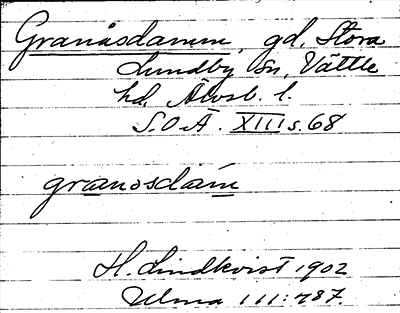 Granåsdammen, gd, Stora
Lundby sn, Vättle
hd, Älvsb. l.
S.O.Ä. XIII s. 68
granosdam
H. Lindkvist 1902
Ulma 111:787.